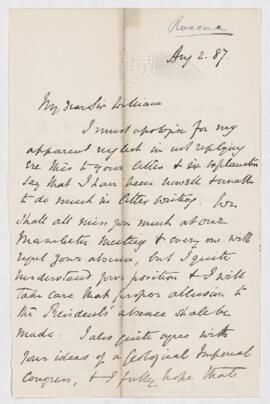 Roscoe
Aug 2. 87.
My dear Sir William
I must apologise for my
apparent neglect in not replying
ere this to your letter & in explanation
say that I have been unwell & unable
to do much in letter writing. We
shall all miss you much at our
Manchester meeting & every one will
regret your absence, but I quite
understand your position & I will
take care that proper allusion to
the President's absence shall be
made. I also quite agree with
your ideas of a Geological Imperial
Congress, & I fully hope that